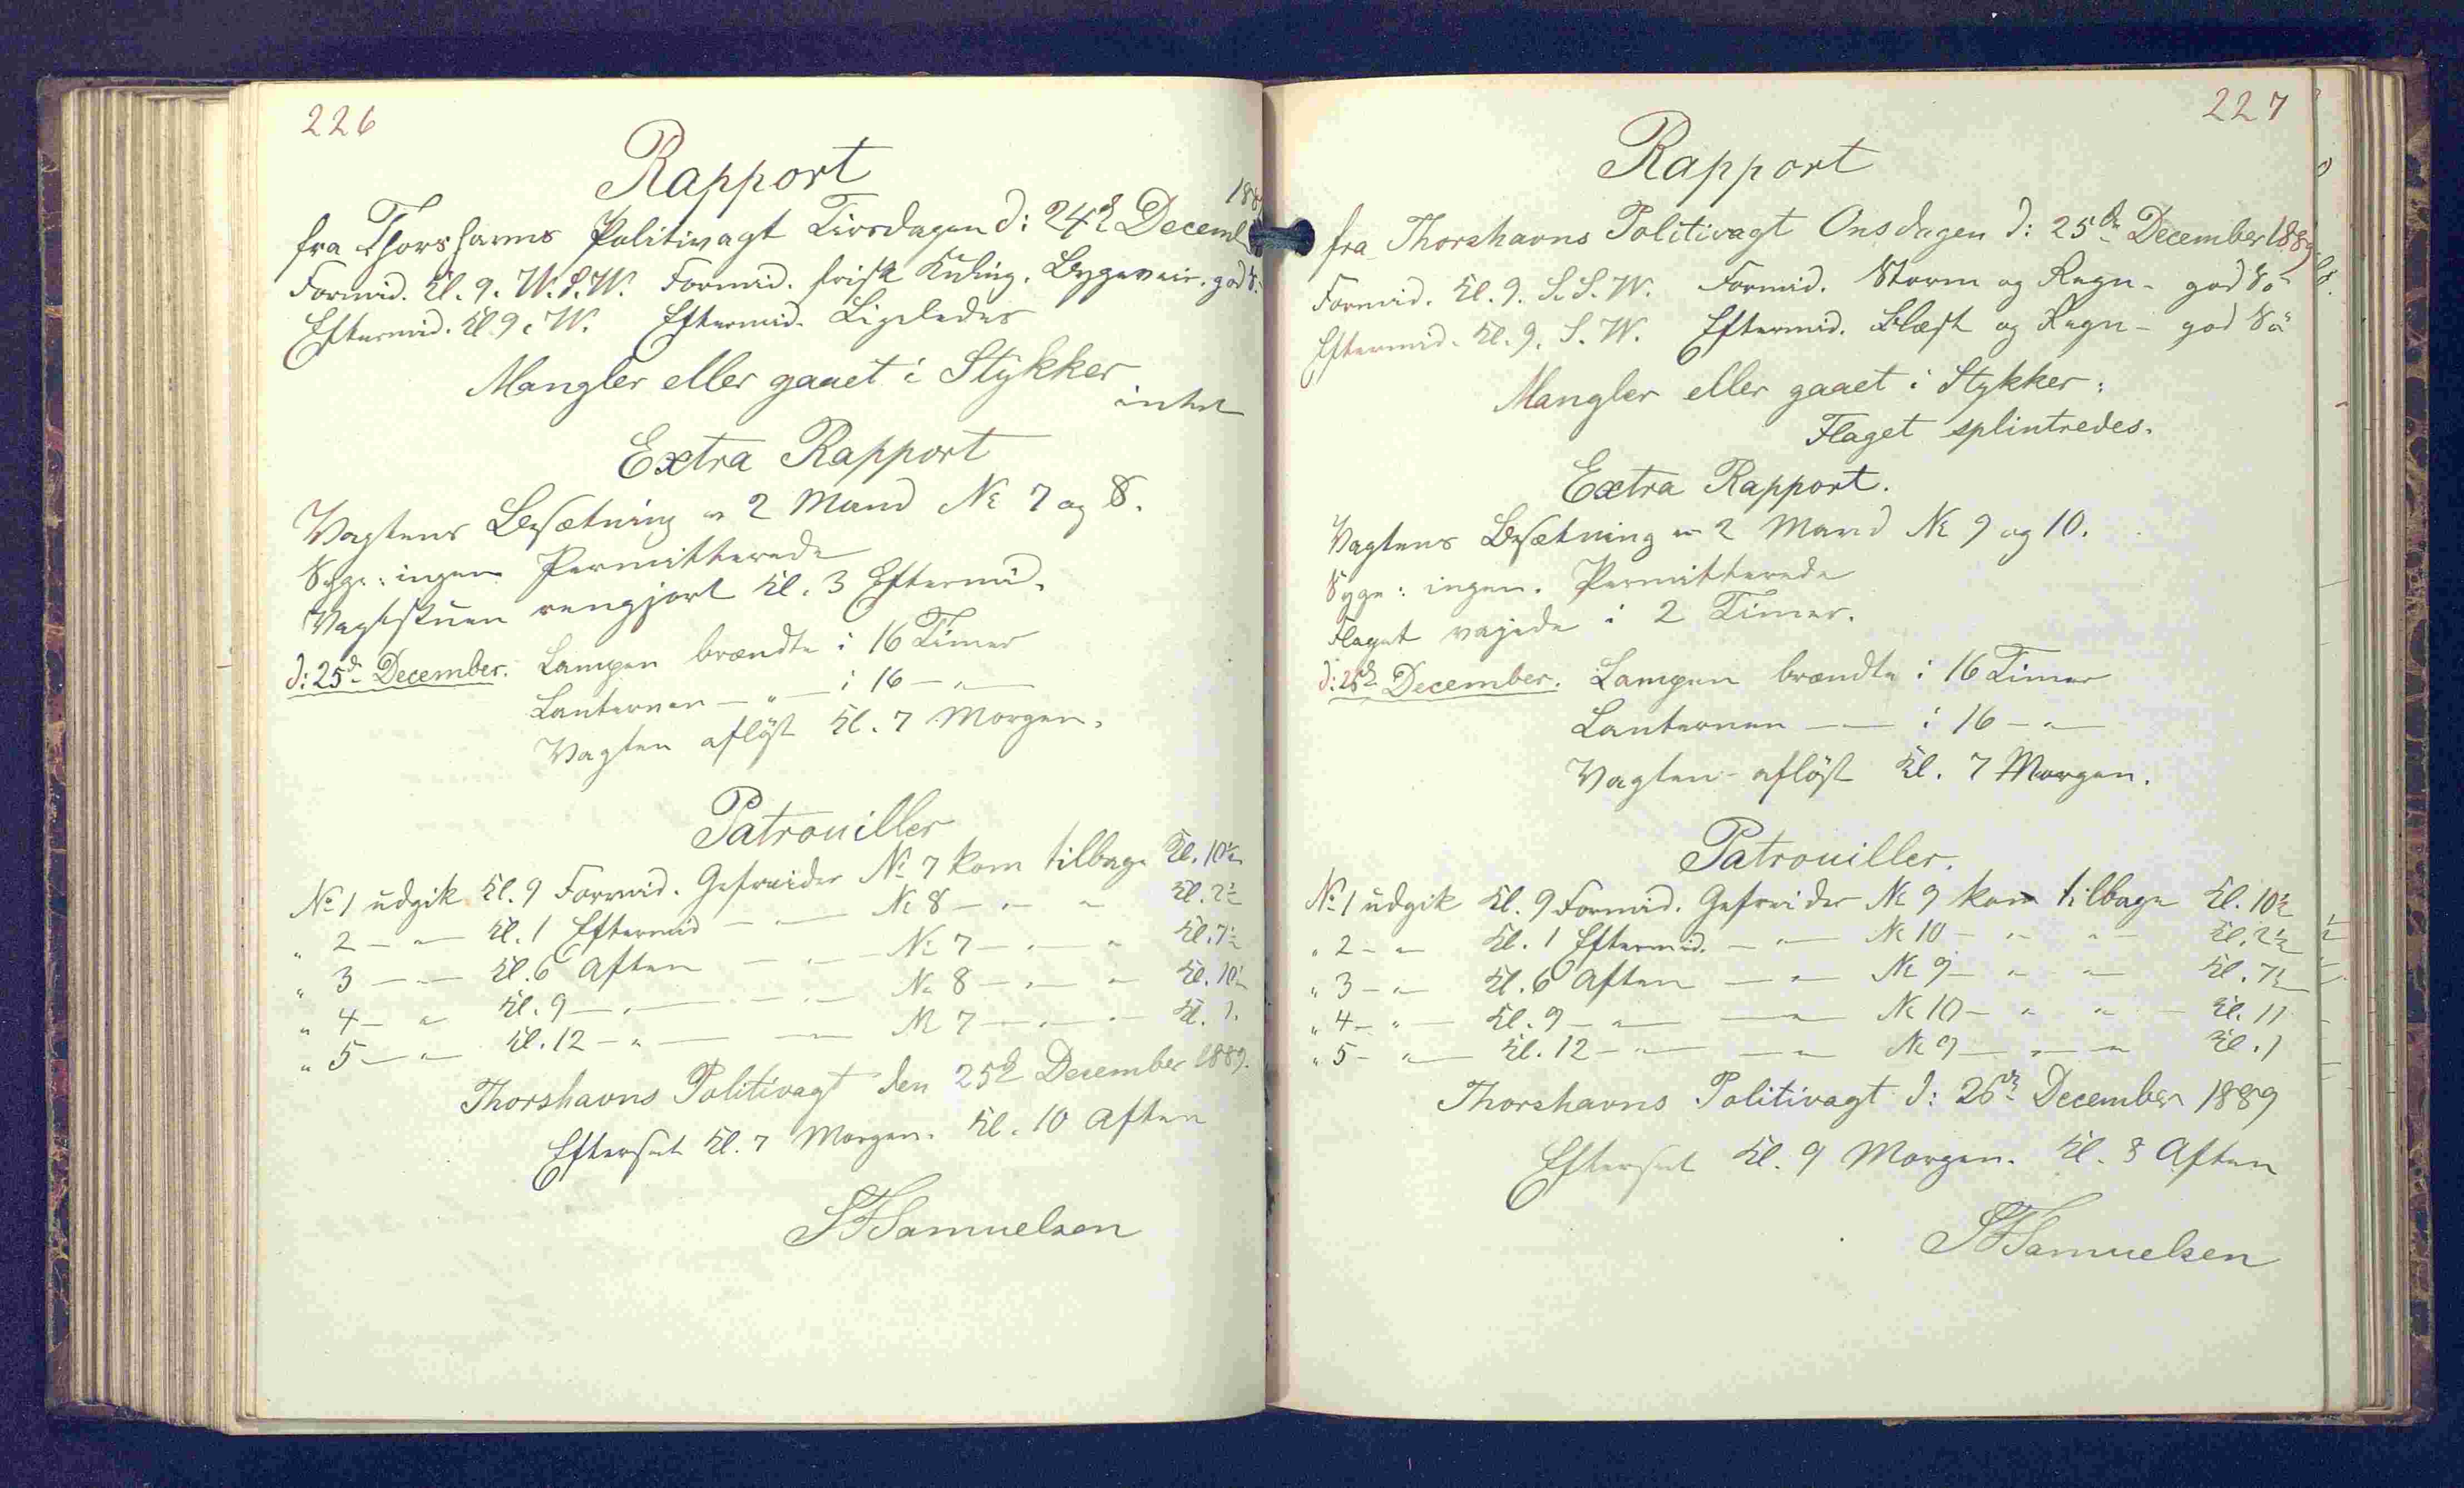 226
Rapport
fra Thorshavns Politivagt Tirsdagen d: 24de Decemb
188
Formid. Kl. 9. W.S.W. Formid. frisk Kuling. Bygeveir. god S.
Eftermid. Kl. 9. W. Eftermid. Ligeledes
Mangler eller gaaet i Stykker
intet
Extra Rapport
Vagtens Besætning er 2 Mand No 7 og 8.
Syge: ingen Permitterede
Vagtstuen rengjort Kl. 3 Eftermid.
d: 25de December. Lampen brændte i 16 Timer
Lanternen — " — i 16 — " —
Vagten afløst Kl. 7 Morgen.
Patrouiller
No 1 udgik Kl. 9 Formid. Gefreider No 7 kom tilbage Kl. 10½
" 2 — " — Kl. 1 Eftermid — " — No 8 — " — " Kl. 2½
" 3 — " — Kl. 6 Aften — " — No 7 — " — " Kl. 7½
" 4 — " Kl. 9 — " — — " — No 8 — " — " Kl. 10½
" 5 — " — Kl. 12 — " — — " — No 7 — " — " — Kl. 1.
Thorshavns Politivagt den 25de December 1889.
Efterset Kl. 7 Morgen. Kl. 10 Aften
Samuelsen
227
Rapport
fra Thorshavns Politivagt Onsdagen d: 25de December 1889
Formid. Kl. 9. S.S.W. Formid. Storm og Regn - god Sö
Eftermid. Kl. 9. S.W. Eftermid. Blæst og Regn - god Sö
Mangler eller gaaet i Stykker:
Flaget splintredes.
Extra Rapport.
Vagtens Besætning er 2 Mand No 9 og 10.
Syge: ingen. Permitterede
Flaget vajede i 2 Timer.
d: 26de December. Lampen brændte i 16 Timer
Lanternen — " — i 16 — " —
Vagten afløst Kl. 7 Morgen.
Patrouiller.
No 1 udgik Kl. 9 Formid. Gefreider No 9 kom tilbage Kl. 10½
" 2 — " Kl. 1 Eftermid. — " — No 10 — " " — Kl. 2½
" 3 — " Kl. 6 Aften — " No 9 — " " — Kl. 7½
" 4 — " — Kl. 9 — " — — " — No 10 — " " — Kl. 11
" 5 — " — Kl. 12 — " — — " No 9 — " — " Kl. 1
Thorshavns Politivagt d: 26de December 1889
Efterset Kl. 9 Morgen. Kl. 8 Aften
Samuelsen